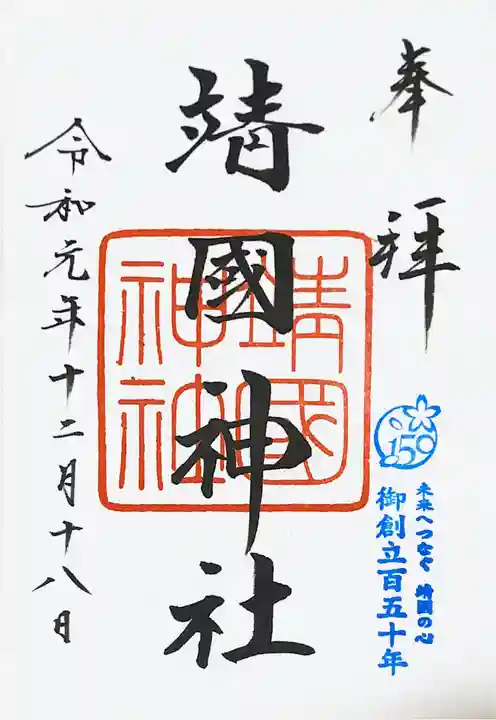 奉拝
靖國神社
靖國神社
令和元年十二月十八日
159
未来へつなぐ 靖國の心
御創立百五十年